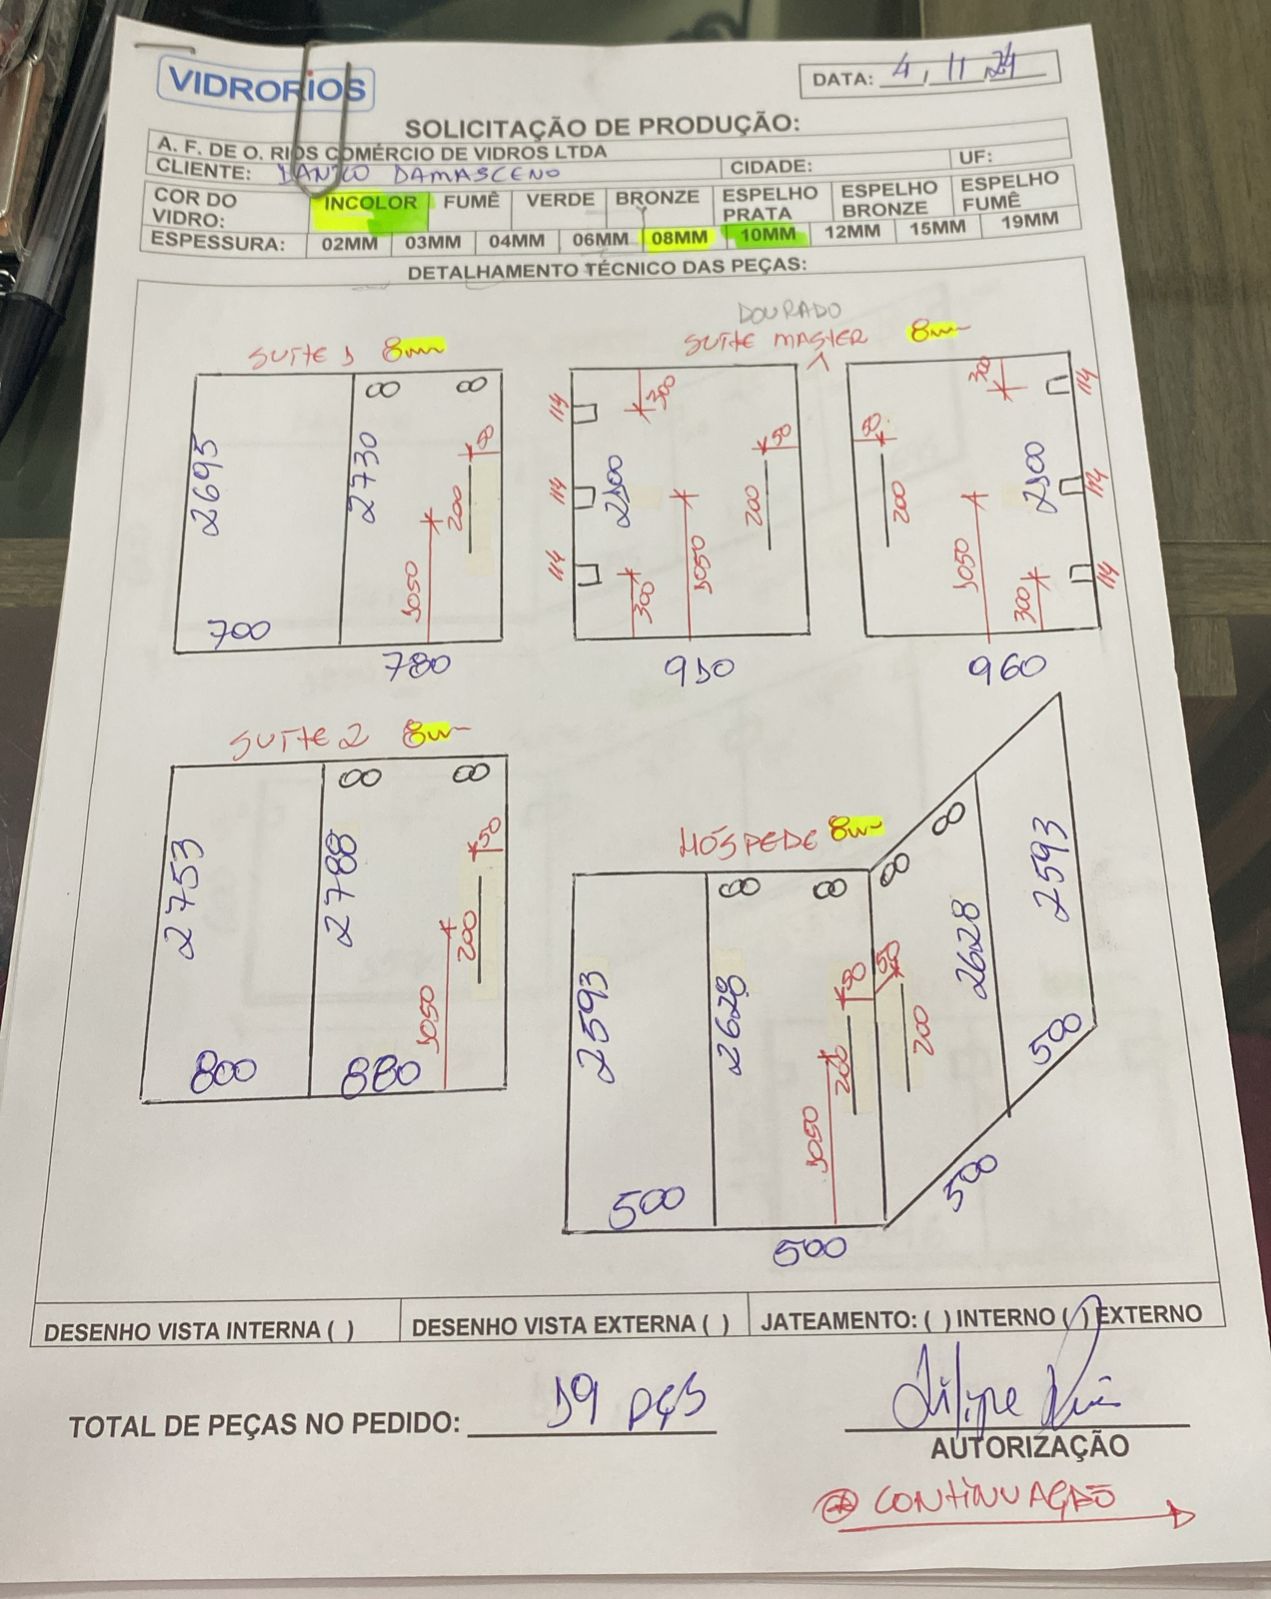 VIDRORIOS
DATA: 4, 11, 24
SOLICITAÇÃO DE PRODUÇÃO:
A. F. DE O. RIOS COMÉRCIO DE VIDROS LTDA
CLIENTE: DANILO DAMASCENO CIDADE: UF:
COR DO VIDRO: INCOLOR FUMÊ VERDE BRONZE ESPELHO PRATA ESPELHO BRONZE ESPELHO FUMÊ
ESPESSURA: 02MM 03MM 04MM 06MM 08MM 10MM 12MM 15MM 19MM
DETALHAMENTO TÉCNICO DAS PEÇAS:
SUITE 1 8mm
2695
700
2730
50
200
1050
780
DOURADO
SUITE MASTER 8mm
114
114
114
300
2100
50
200
1050
300
910
300
114
50
200
2100
114
1050
300
114
960
SUITE 2 8mm
2753
800
2788
50
200
1050
880
HÓSPEDE 8mm
2593
500
2628
50
200
1050
500
50
200
2628
500
2593
500
DESENHO VISTA INTERNA ( ) DESENHO VISTA EXTERNA ( ) JATEAMENTO: ( ) INTERNO ( ) EXTERNO
TOTAL DE PEÇAS NO PEDIDO: 19 PÇS
AUTORIZAÇÃO
CONTINUAÇÃO